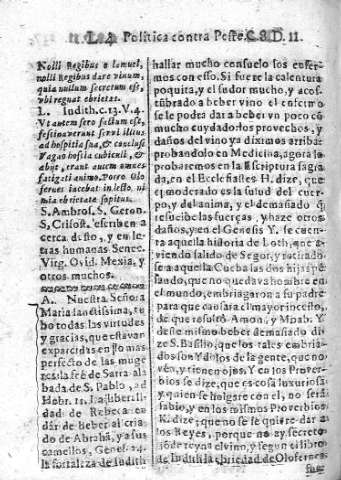 L. 4. Politica contra Peste. C. 8. D. 11
Nolli Regibus o Lamuel,
nolli Regibus dare vinum,
quia nullum secretum est,
vbi regnat ebrietas.
L. Iudith. c. 12. V. 4.
Vt autem sero factum est,
festinaverunt servi illius
ad hospitia sua, & conclusit
Vagao hostia cubiculi, &
abijt, erant autem omnes
fatigati a vino. Porro Olo
fernes iacebat in lecto, ni
mia ebrietate sopitus.
S. Ambros. S. Geron.
S. Crisost. escriben a
cerca desto, y en le-
tras humanas Senec.
Virg. Ovid. Mexia, y
otros muchos.
A. Nuestra Señora
Maria santissima, tu-
bo todas las virtudes
y gracias, que estavan
exparcidas en lo mas
perfecto de las muge
res: la feè de Sarra ala
bada de S. Pablo, ad
Hebr. 11. La liberali-
dad de Rebeca en
dar de beber al cria-
do de Abrahã, y a sus
camellos, Genes. 24.
la fortaleza de Iudith
hallar mucho consuelo los enfer-
mos con esso. Si fuere la calentura
poquita, y el sudor mucho, y acos-
tũbrado a beber vino el enfermo
se le podra dar a beber vn poco cõ
mucho cuydado: los provechos, y
daños del vino ya diximos arriba
probandolo en Medicina, agora lo
probaremos en la Escriptura sagra
da, en el Ecclesiastes H. dize, que
el moderado es la salud del cuer-
po, y del anima, y el demasiado q̃
resucibe las fuerças, y haze otros
daños, y en el Genesis Y. se cuen-
ta aquella historia de Loth, que a-
viendo salido de Segor, y retirado
se a aquella Cueba las dos hijas pe
sando, que no quedava hombre en
el mundo, embriagaron a su padre
para que causara el mayor incesto,
de que resultò Amon, y Moab. Y
deste mismo beber demasiado dize
S. Basilio, que los tales embria-
dos son Ydolos de la gente, que no
vèn, y tienen ojos. Y en los Prover-
bios &. dize, que es cosa luxuriosa,
y quien se holgare con el, no serà
sabio, y en los mismos Proverbios
K. dize, que no se le quiere dar a
los Reyes, porque no ay secreto
dõde reyna el vino, y segun el libro
de Iudith la ebriedad de Olofernes